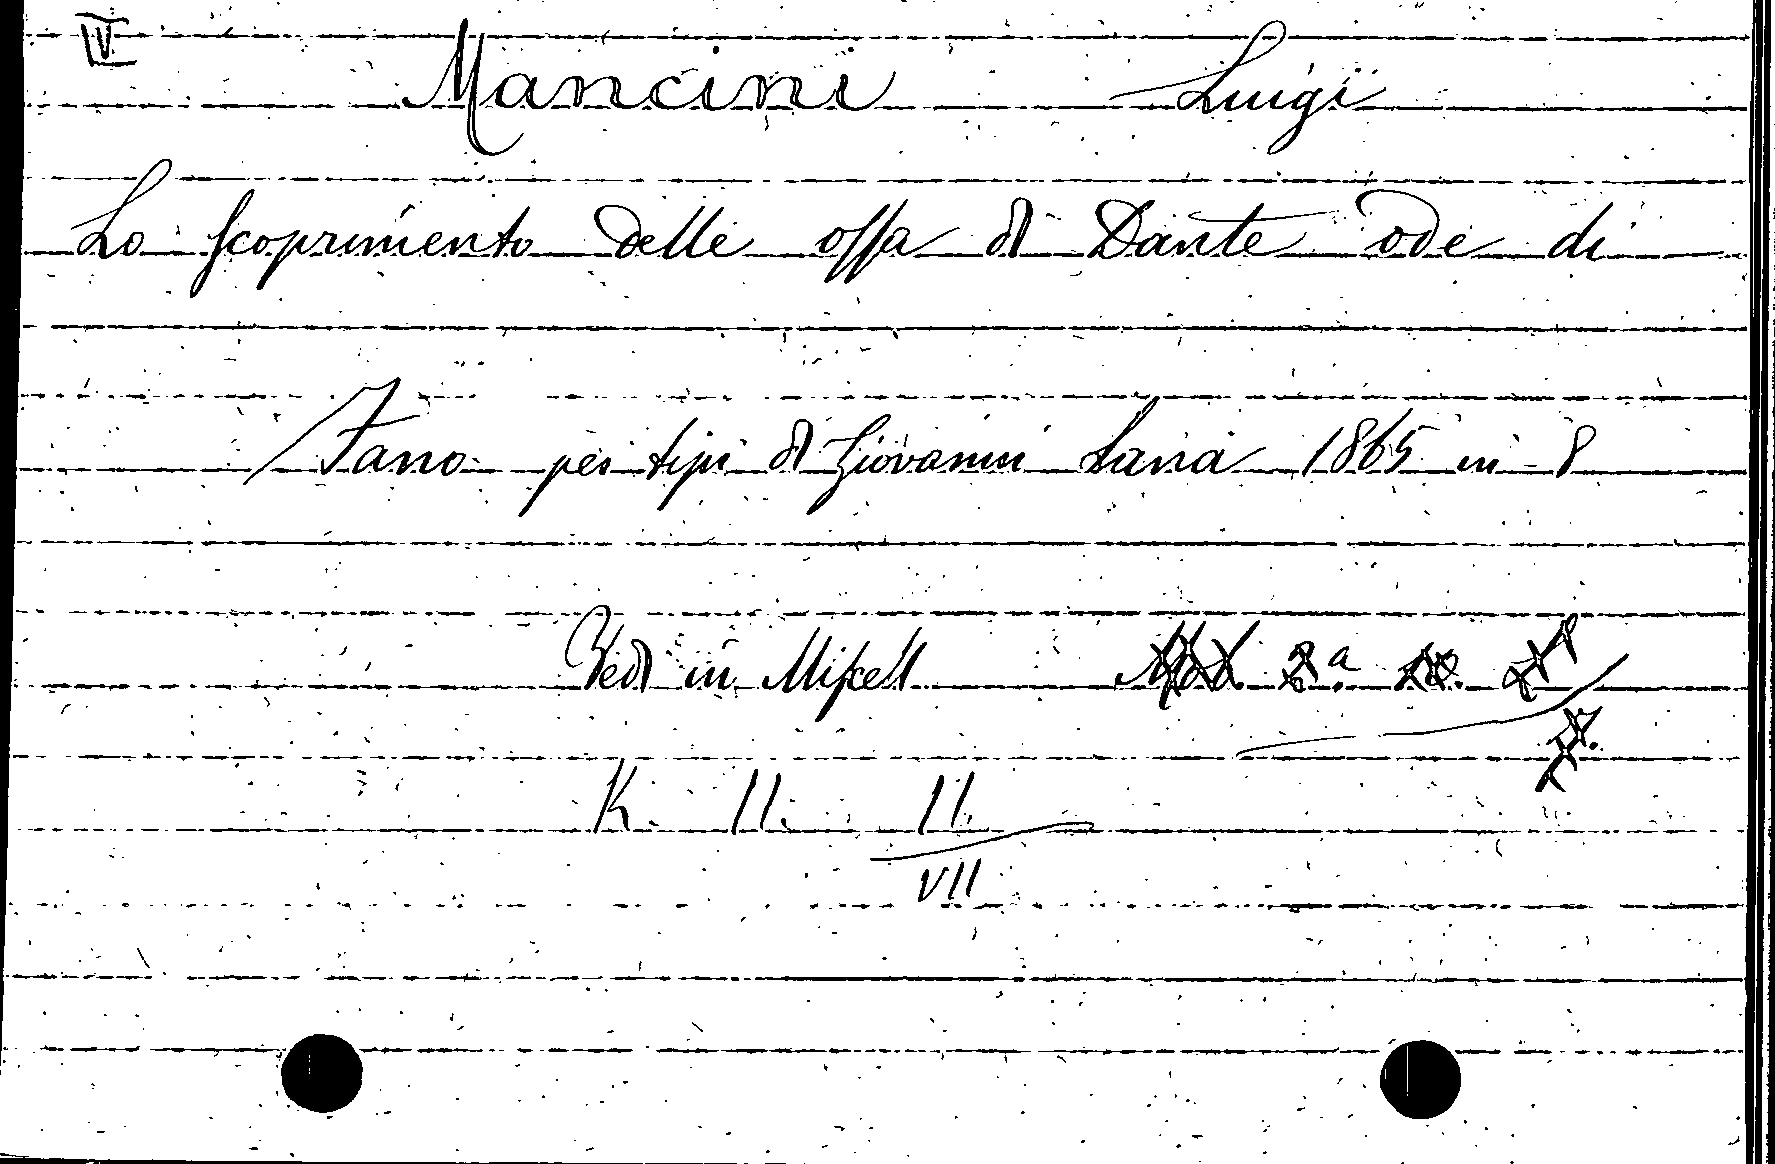 IV
Mancini Luigi
Lo scoprimento delle ossa di Dante ode di
Fano pei tipi di Giovanni Lana 1865 in-8
Vedi in Miscell 2ª
K. 11. 11
VII